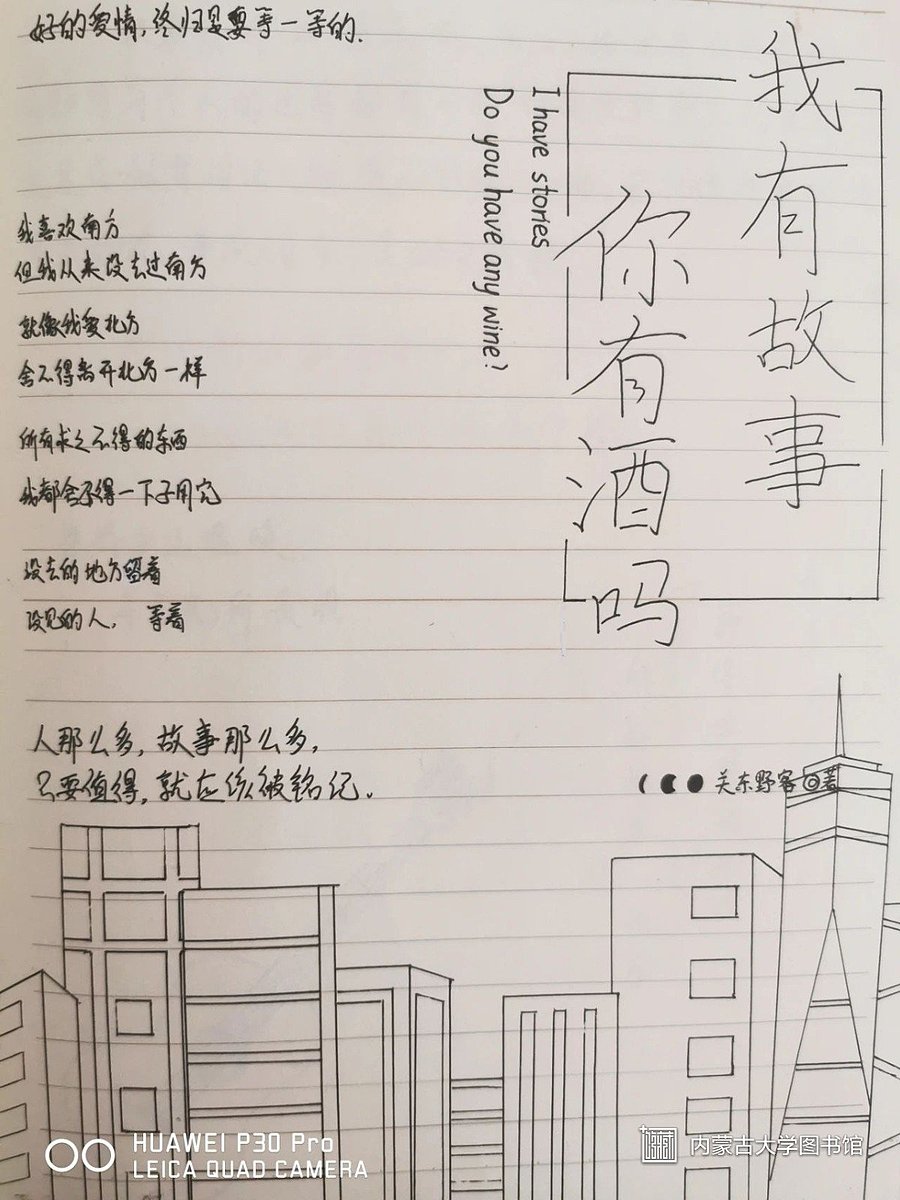 好的爱情,终归是要等一等的.
我有故事
你有酒吗
I have stories
Do you have any wine?
我喜欢南方
但我从来没去过南方
就像我爱北方
舍不得离开北方一样
所有求之不得的东西
我都舍不得一下子用完
没去的地方留着
没见的人, 等着
人那么多,故事那么多,
只要值得,就应该被铭记.
关东野客◎著
HUAWEI P30 Pro
LEICA QUAD CAMERA
内蒙古大学图书馆